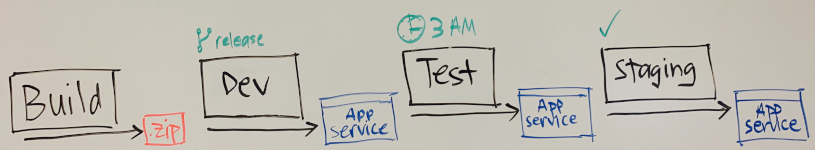 Build
.zip
release
Dev
App
service
3 AM
Test
App
service
Staging
App
service